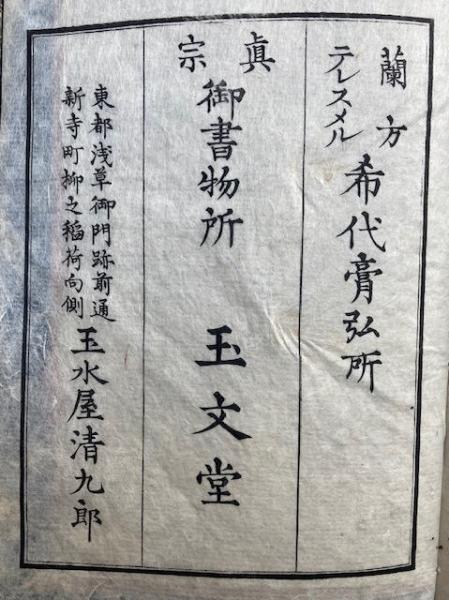 蘭方
テレスメル
希代膏弘所
眞宗
御書物所
玉文堂
東都浅草御門跡前通
新寺町柳之稲荷向側
玉水屋清九郎